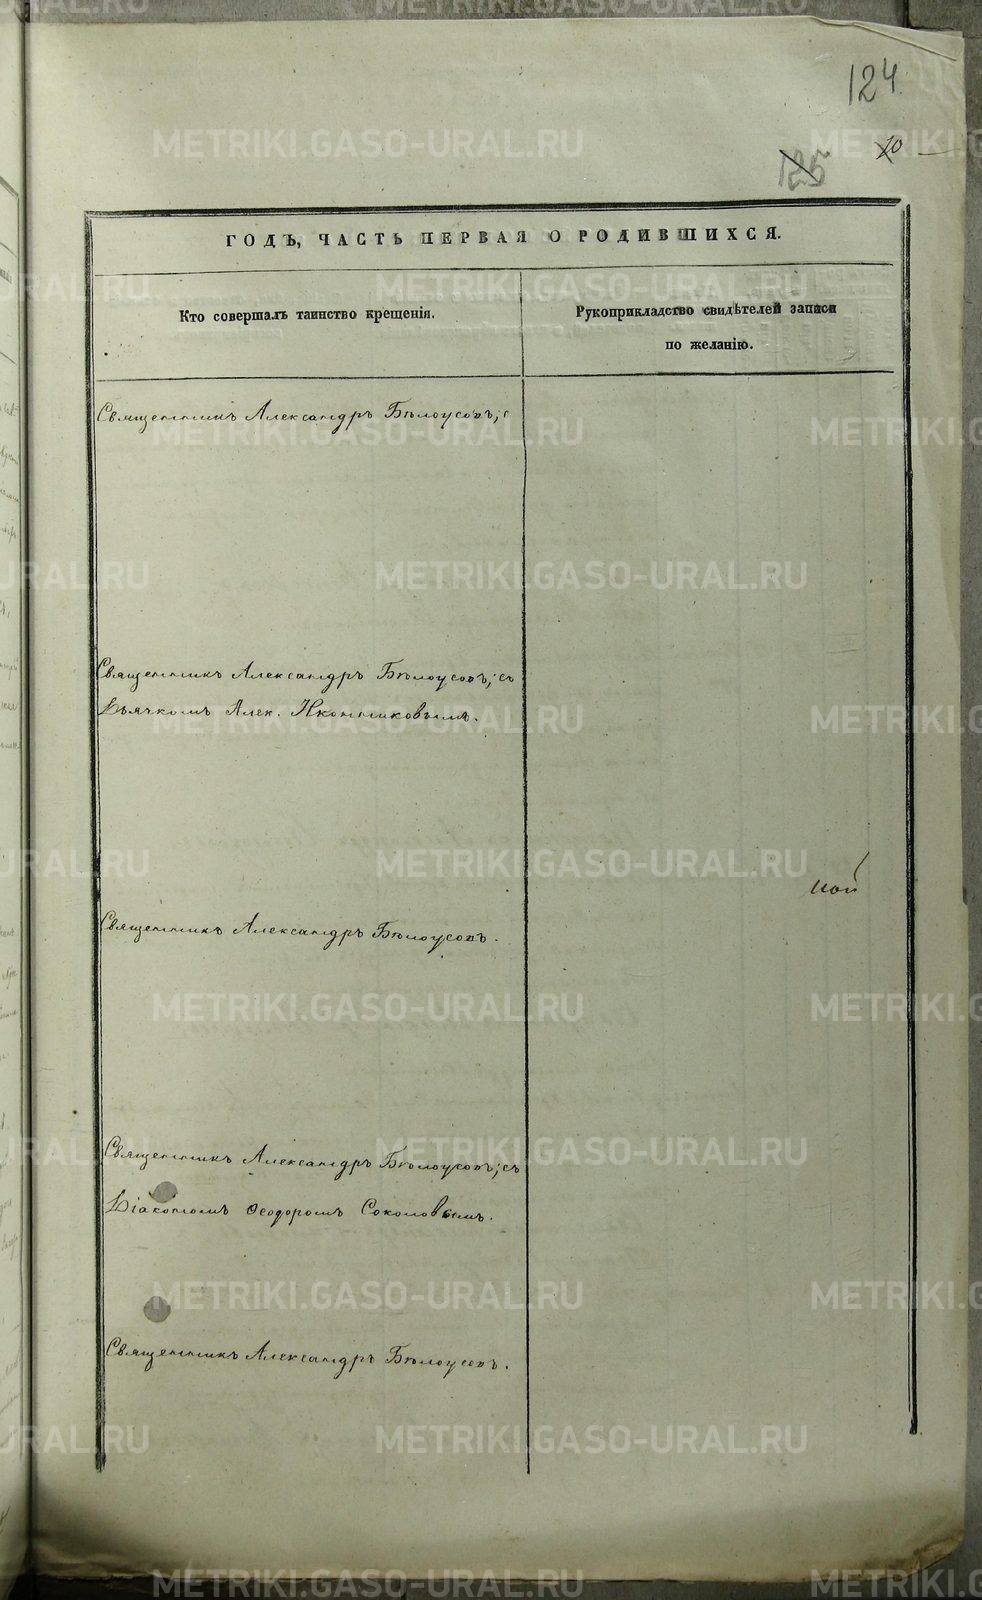 124
125
10
ГОДЪ, ЧАСТЬ ПЕРВАЯ О РОДИВШИХСЯ.
Кто совершалъ таинство крещенія.
Рукоприкладство свидѣтелей записи
по желанію.
Священникъ Александръ Бѣлоусовъ;
Священникъ Александръ Бѣлоусовъ; съ
Дьячкомъ Алек. Иконниковымъ.
кой
Священникъ Александръ Бѣлоусовъ.
Священникъ Александръ Бѣлоусовъ; съ
Діакономъ Ѳеодоромъ Соколовымъ.
Священникъ Александръ Бѣлоусовъ.
METRIKI.GASO-URAL.RU